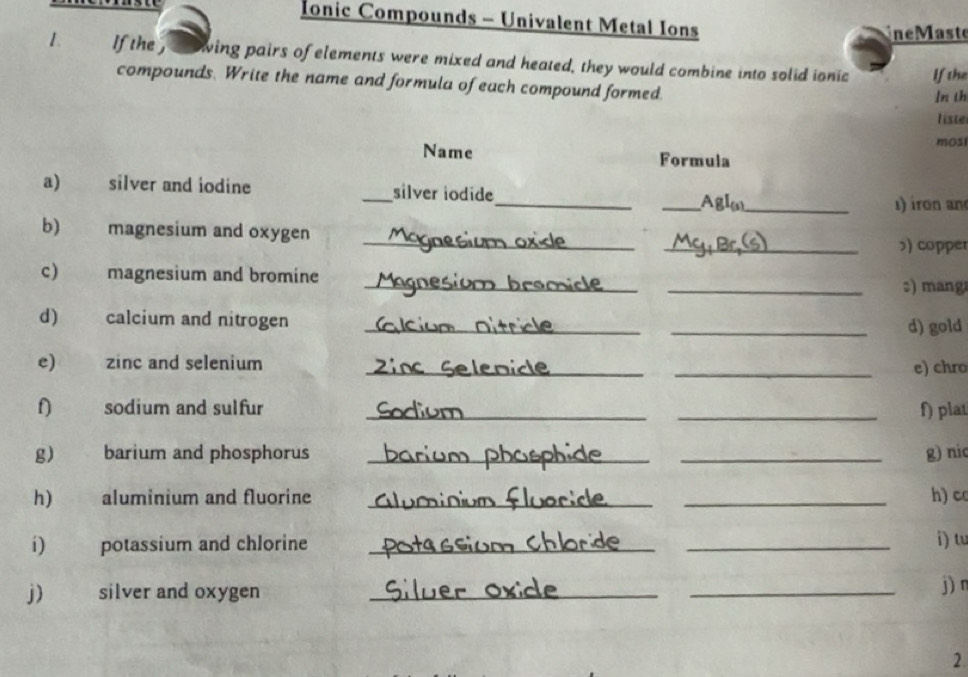 Ionic Compounds - Univalent Metal Ions
neMaste
1. If the wing pairs of elements were mixed and heated, they would combine into solid ionic
compounds. Write the name and formula of each compound formed.
If the
In th
liste
most
Name Formula
a) silver and iodine silver iodide AgI(s)
b) magnesium and oxygen Magnesium oxide Mg, Br, (s)
c) magnesium and bromine Magnesium bromide
d) calcium and nitrogen Calcium nitride
e) zinc and selenium Zinc Selenide
f) sodium and sulfur Sodium
g) barium and phosphorus barium phosphide
h) aluminium and fluorine aluminium fluoride
i) potassium and chlorine potassium Chloride
j) silver and oxygen Silver oxide
) iron and
) copper
) manga
d) gold
e) chro
f) plat
g) nic
h) co
i) tu
j) n
2